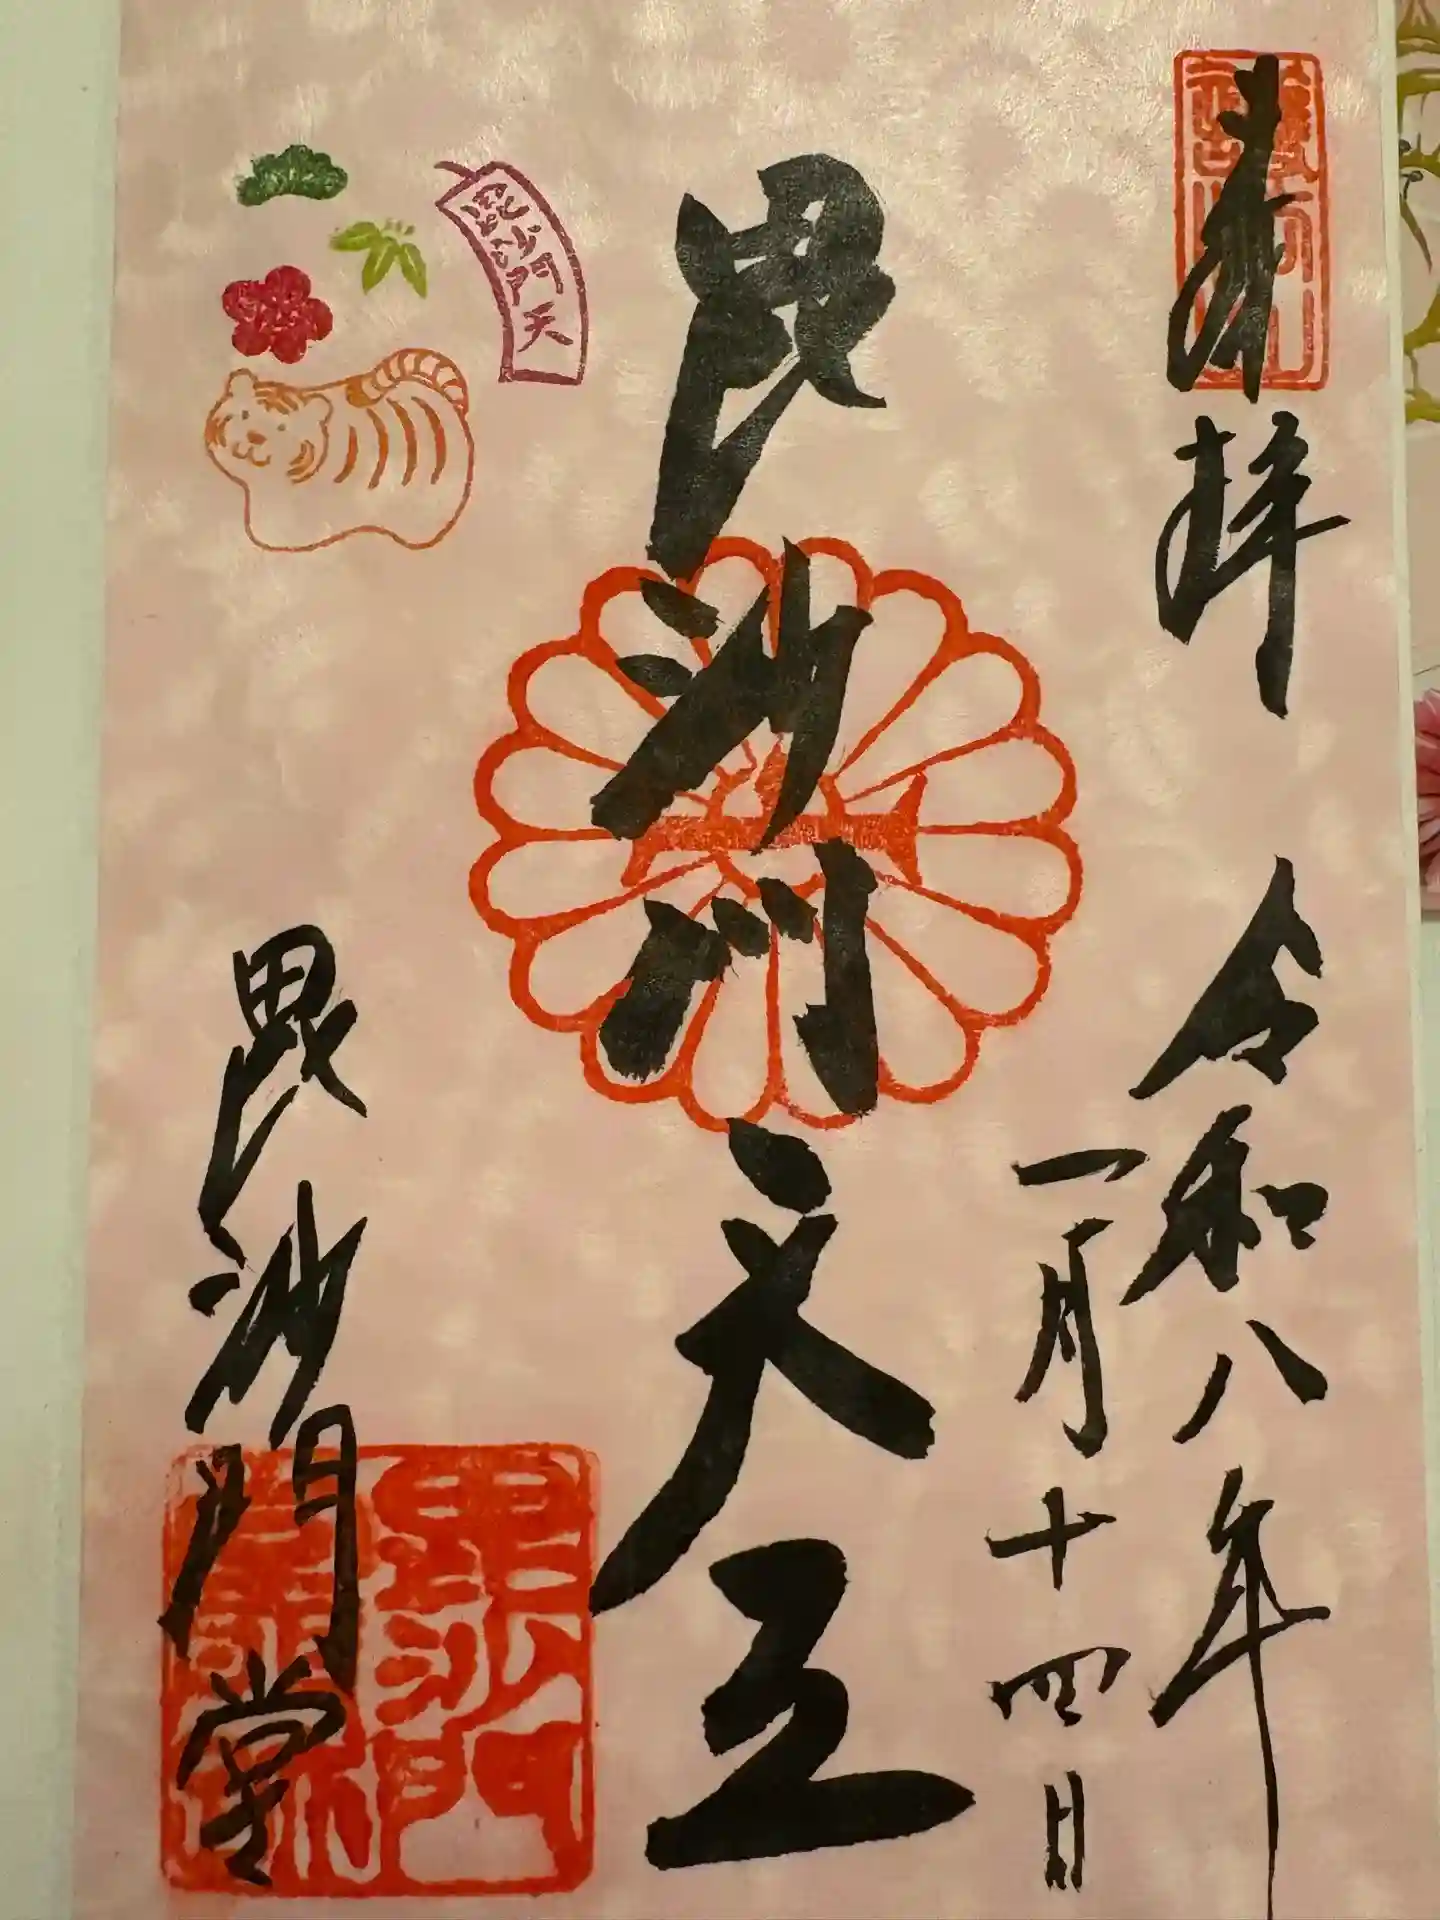 奉拝
令和八年
一月十四日
毘沙門天王
毘沙門天
毘沙門堂